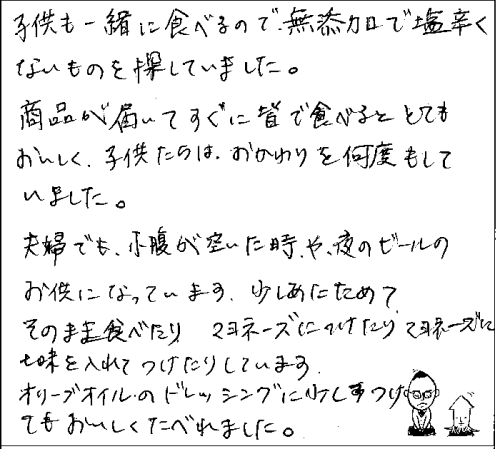 子供も一緒に食べるので、無添加で塩辛く
ないものを探していました。
商品が届いてすぐに皆で食べるととても
おいしく、子供たちは、おかわりを何度もして
いました。
夫婦でも、小腹が空いた時や、夜のビールの
お供になっています。少しあたためて
そのまま食べたり マヨネーズにつけたり マヨネーズに
七味を入れてつけたりしています。
オリーブオイルのドレッシングに少しつけ
てもおいしくたべれました。